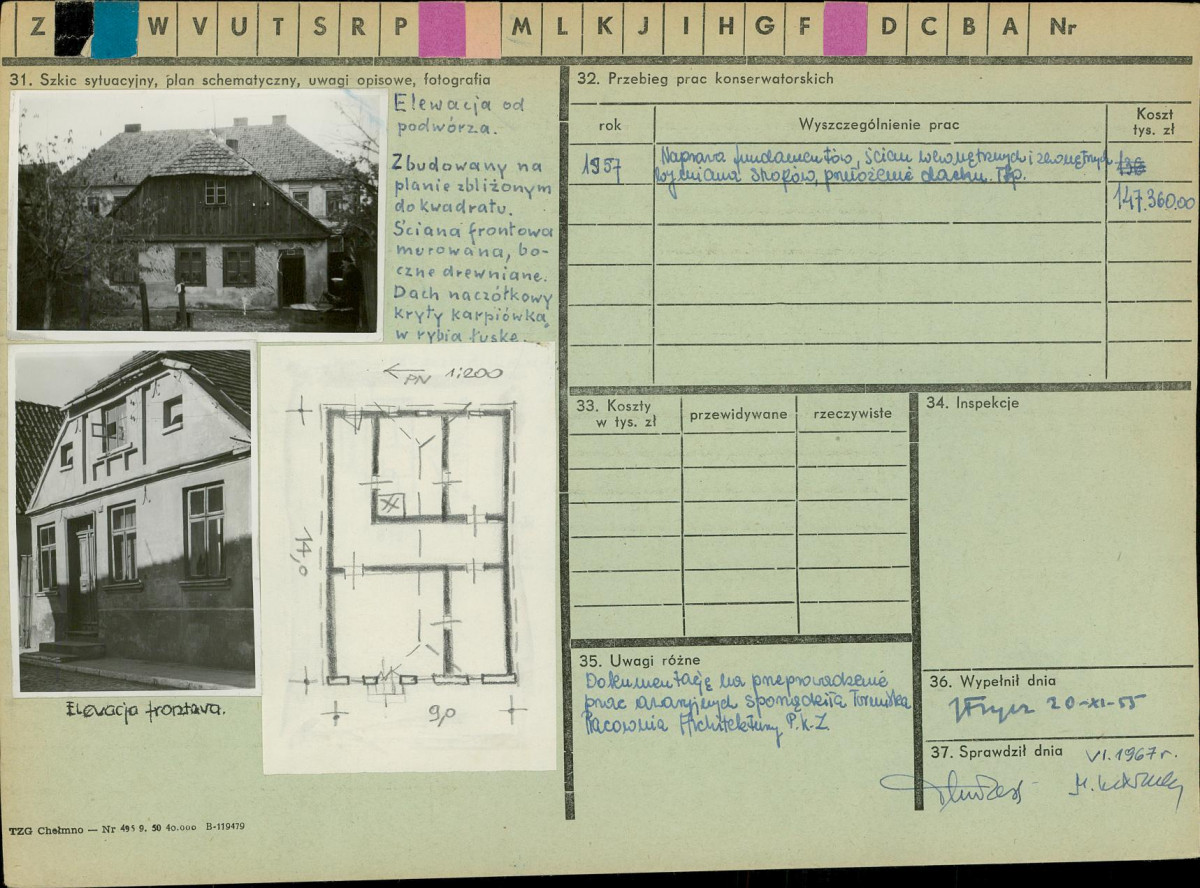 Z W V U T S R P M L K J I H G F D C B A Nr
31. Szkic sytuacyjny, plan schematyczny, uwagi opisowe, fotografia
Elewacja od
podwórza.
Zbudowany na
planie zbliżonym
do kwadratu.
Ściana frontowa
murowana, bo-
czne drewniane.
Dach naczółkowy
kryty karpiówką
w rybią łuskę.
PN 1:200
14,0
9,0
Elewacja frontowa.
TZG Chełmno — Nr 495 9. 50 40.000 B-119479
32. Przebieg prac konserwatorskich
rok
Wyszczególnienie prac
Koszt
tys. zł
1957
Naprawa fundamentów, ścian wewnętrznych i zewnętrznych
wymiana stropów, przełożenie dachu.
147.360.00
33. Koszty
w tys. zł
przewidywane
rzeczywiste
34. Inspekcje
35. Uwagi różne
Dokumentację na przeprowadzenie
prac awaryjnych sporządziła Toruńska
Pracownia Architektury P.K-Z
36. Wypełnił dnia
20-XI-55
37. Sprawdził dnia
VI.1967r.